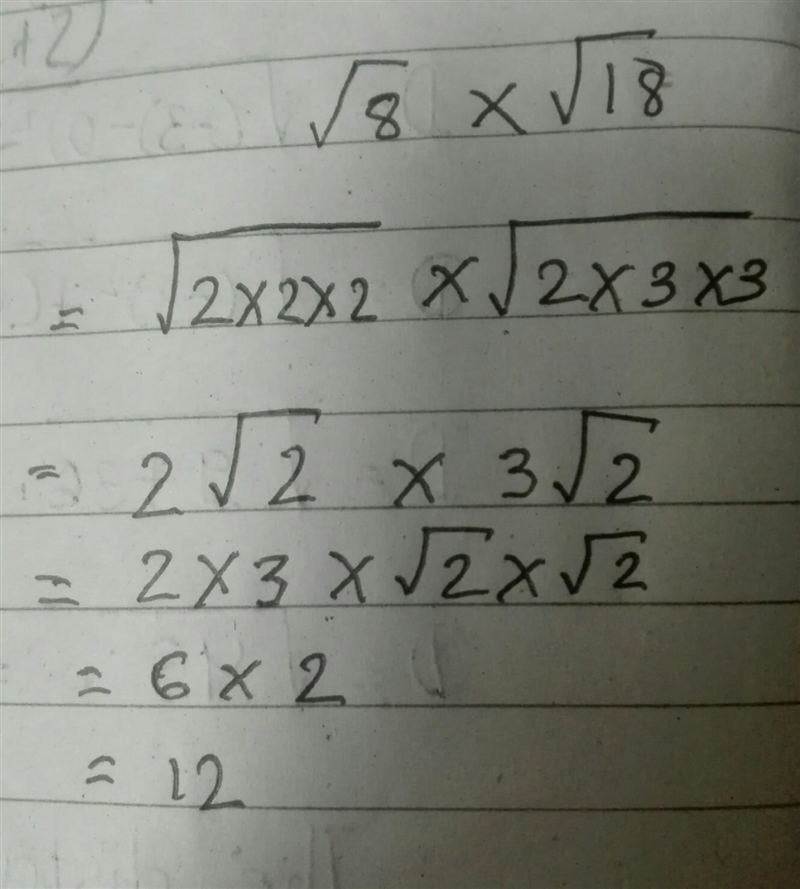 +2)
√8 × √18
= √2×2×2 × √2×3×3
= 2√2 × 3√2
= 2×3×√2×√2
= 6×2
= 12